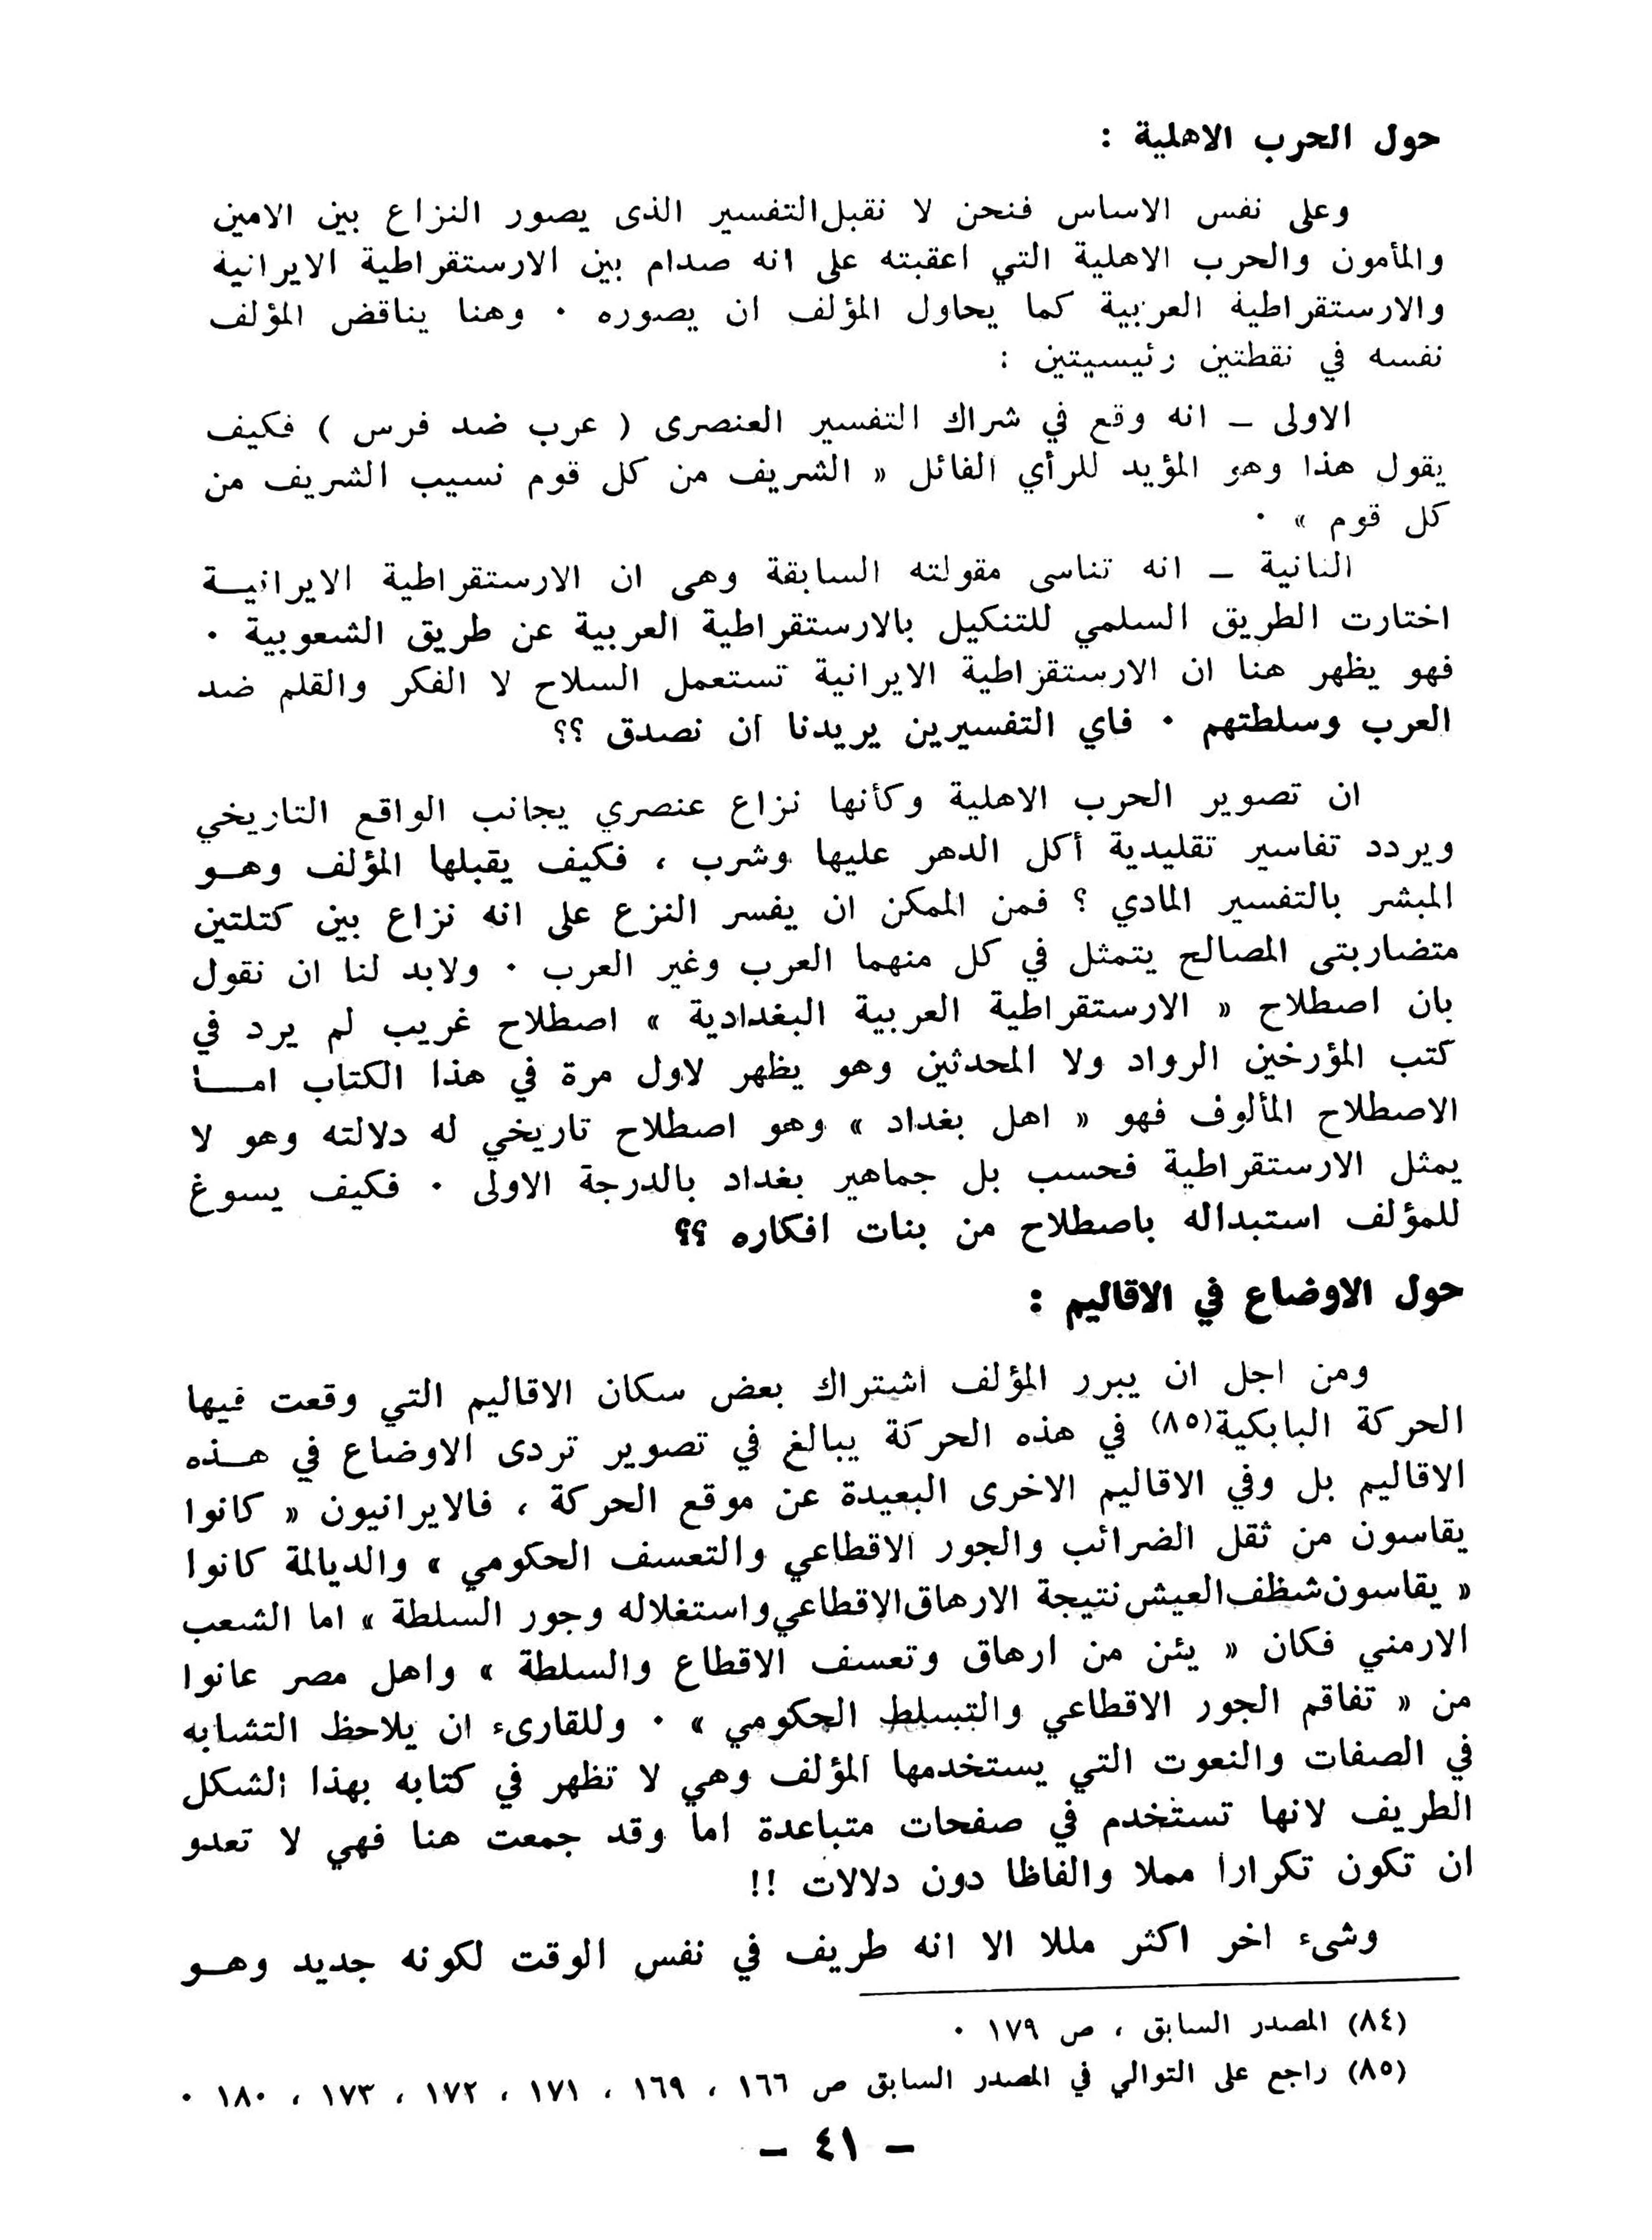 حول الحرب الاهلية :
وعلى نفس الاساس فنحن لا نقبل التفسير الذى يصور النزاع بين الامين
والمأمون والحرب الاهلية التي اعقبته على انه صدام بين الارستقراطية الايرانية
والارستقراطية العربية كما يحاول المؤلف ان يصوره . وهنا يناقض المؤلف
نفسه في نقطتين رئيسيتين :
الاولى – انه وقع في شراك التفسير العنصرى ( عرب ضد فرس ) فكيف
يقول هذا وهو المؤيد للرأي القائل « الشريف من كل قوم نسيب الشريف من
كل قوم » .
الثانية – انه تناسى مقولته السابقة وهى ان الارستقراطية الايرانيــة
اختارت الطريق السلمي للتنكيل بالارستقراطية العربية عن طريق الشعوبية .
فهو يظهر هنا ان الارستقراطية الايرانية تستعمل السلاح لا الفكر والقلم ضد
العرب وسلطتهم . فاي التفسيرين يريدنا ان نصدق ؟؟
ان تصوير الحرب الاهلية وكأنها نزاع عنصري يجانب الواقع التاريخي
ويردد تفاسير تقليدية أكل الدهر عليها وشرب ، فكيف يقبلها المؤلف وهــو
المبشر بالتفسير المادي ؟ فمن الممكن ان يفسر النزع على انه نزاع بين كتلتين
متضاربتى المصالح يتمثل في كل منهما العرب وغير العرب . ولابد لنا ان نقول
بان اصطلاح « الارستقراطية العربية البغدادية » اصطلاح غريب لم يرد في
كتب المؤرخين الرواد ولا المحدثين وهو يظهر لاول مرة في هذا الكتاب امــا
الاصطلاح المألوف فهو « اهل بغداد » وهو اصطلاح تاريخي له دلالته وهو لا
يمثل الارستقراطية فحسب بل جماهير بغداد بالدرجة الاولى . فكيف يسوغ
للمؤلف استبداله باصطلاح من بنات افكاره ؟؟
حول الاوضاع في الاقاليم :
ومن اجل ان يبرر المؤلف اشتراك بعض سكان الاقاليم التي وقعت فيها
الحركة البابكية(٨٥) في هذه الحركة يبالغ في تصوير تردى الاوضاع في هــذه
الاقاليم بل وفي الاقاليم الاخرى البعيدة عن موقع الحركة ، فالايرانيون « كانوا
يقاسون من ثقل الضرائب والجور الاقطاعي والتعسف الحكومي » والديالمة كانوا
« يقاسون شظف العيش نتيجة الارهاق الاقطاعي واستغلاله وجور السلطة » اما الشعب
الارمني فكان « يئن من ارهاق وتعسف الاقطاع والسلطة » واهل مصر عانوا
من « تفاقم الجور الاقطاعي والتسلط الحكومي » . وللقارىء ان يلاحظ التشابه
في الصفات والنعوت التي يستخدمها المؤلف وهي لا تظهر في كتابه بهذا الشكل
الطريف لانها تستخدم في صفحات متباعدة اما وقد جمعت هنا فهي لا تعدو
ان تكون تكرارا مملا والفاظا دون دلالات !!
وشىء اخر اكثر مللا الا انه طريف في نفس الوقت لكونه جديد وهــو
(٨٤) المصدر السابق ، ص ١٧٩ .
(٨٥) راجع على التوالي في المصدر السابق ص ١٦٦ ، ١٦٩ ، ١٧١ ، ١٧٢ ، ١٧٣ ، ١٨٠ .
– ٤١ –